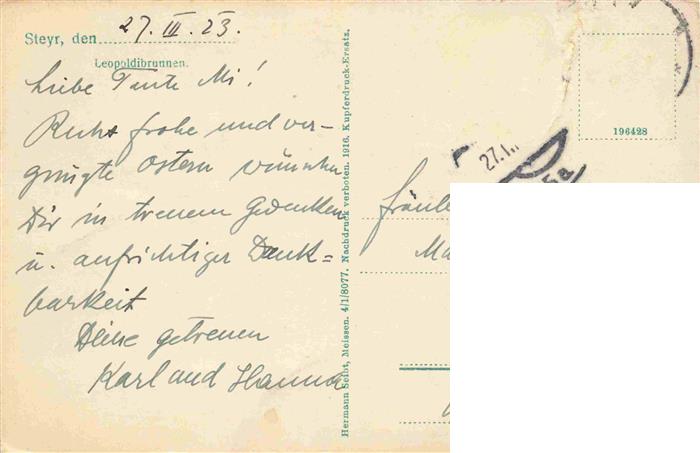 Steyr, den 27. III. 23.
Leopoldibrunnen.
Liebe Tante Mi!
Recht frohe und ver-
gnügte Ostern wünschen
Dir in treuem Gedenken
u. aufrichtiger Dank=
barkeit
Deine getreuen
Karl und Hanna
Hermann Seibt, Meissen. 4/1/8077. Nachdruck verboten. 1916. Kupferdruck-Ersatz.
196428
27.I